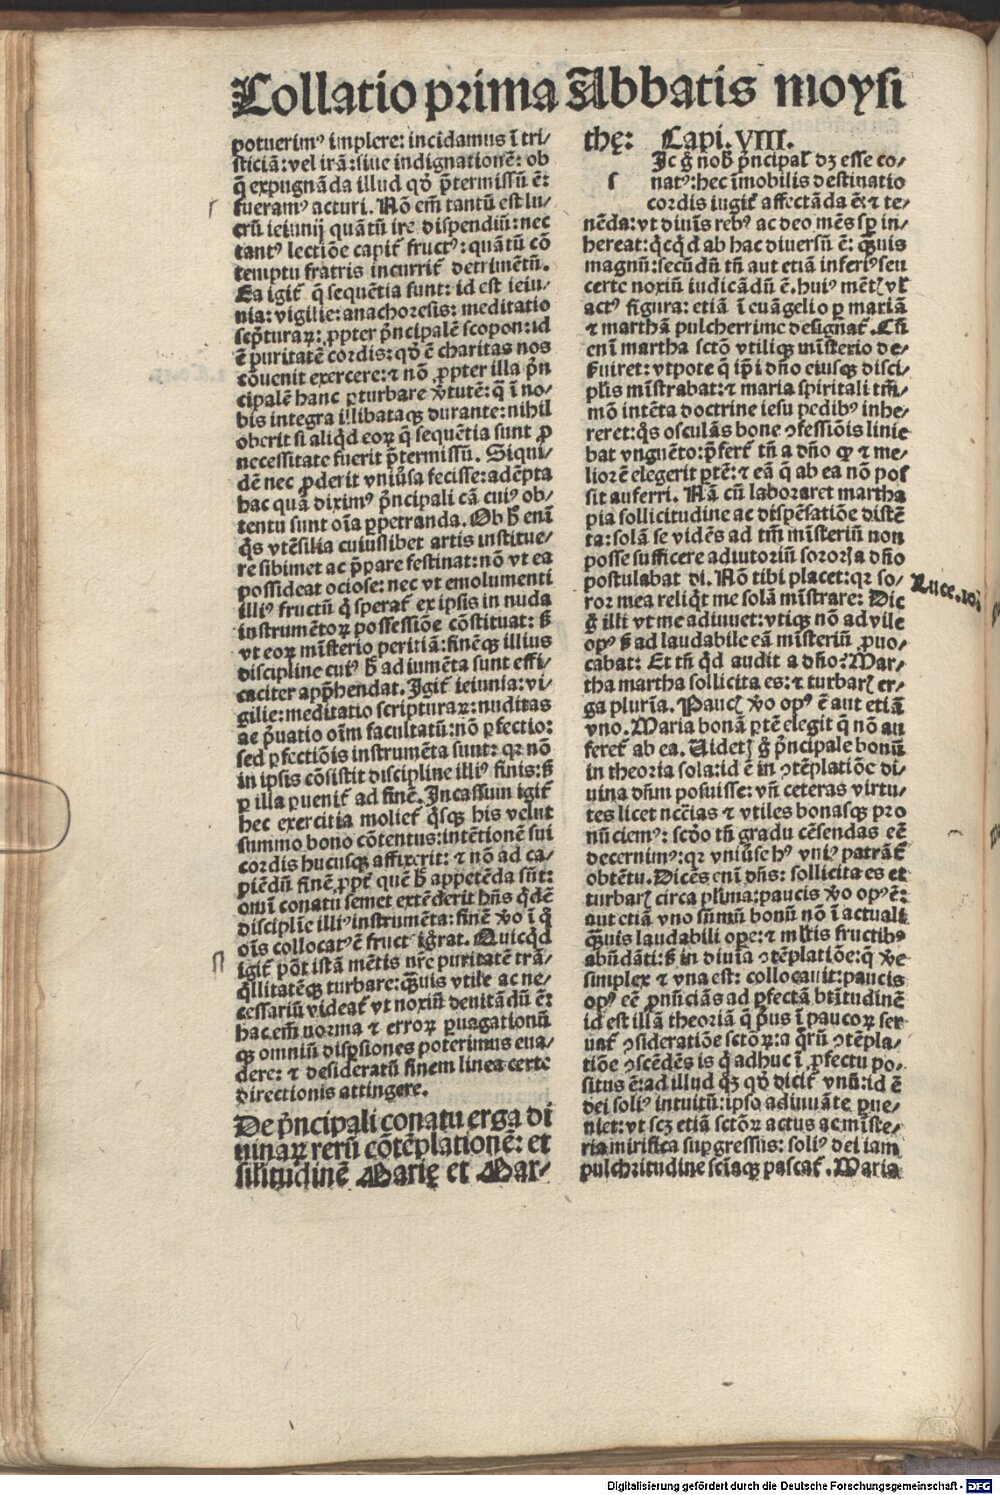 Collatio prima Abbatis moysi
potuerimꝰ implere: incidamus ī tri-
sticiā: vel irā: siue indignationē: ob
q̄ expugnāda illud qd̓ p̄termissū ē:
fueramꝰ acturi. Nō em̄ tantū est lu-
crū ieiunij quātū ire dispendiū: nec
tantꝰ lectiōe capit̄ fructꝰ: quātū cō
temptu fratris incurrit̄ detrimētū.
Ea igit̄ q̄ sequētia sunt: id est ieiu-
nia: vigilie: anachoresis: meditatio
scp̄turaꝝ: ꝓpter p̓ncipalē scopon: id
ē puritatē cordis: qd̓ ē charitas nos
cōuenit exercere: ⁊ nō ꝓpter illa p̓n
cipalē hanc ꝑturbare v̓tutē: q̄ ī no-
bis integra illibataqꝫ durante: nihil
oberit si aliqd̓ eoꝝ q̄ sequētia sunt ꝓ
necessitate fuerit p̄termissū. Siqui-
dē nec ꝓderit vniu̓sa fecisse: adēpta
hac quā diximꝰ p̓ncipali cā cuiꝰ ob-
tentu sunt oīa ꝑpetranda. Ob h̄ eni
q̓s vtēsilia cuiuslibet artis institue-
re sibimet ac p̄pare festinat: nō vt ea
possideat ociose: nec vt emolumenti
illiꝰ fructū q̓ sperat̄ ex ipsis in nuda
instrumētoꝝ possessiōe cōstituat: s̄
vt eoꝝ mīsterio peritiā: finēqꝫ illius
discipline cuiꝰ h̄ adiumēta sunt effi-
caciter app̄hendat. Igit̄ ieiunia: vi-
gilie: meditatio scripturaꝝ: nuditas
ac p̓uatio oīm facultatū: nō ꝑfectio:
sed ꝑfectiōis instrumēta sunt: qꝛ nō
in ipsis cōsistit discipline illiꝰ finis: s̄
ꝑ illa ꝑuenit̄ ad finē. Incassum igit̄
hec exercitia moliet̄ q̓sqꝫ his velut
summo bono cōtentus: intētionē sui
cordis hucusqꝫ affixerit: ⁊ nō ad ca-
piēdū finē, ꝓpt̄ quē h̄ appetēda sūt:
omī conatu semet extēderit hn̄s q̓dē
disciplīe illiꝰ instrumēta: finē v̓o ī q̓
oīs collocatꝰ ē fructꝰ ignorat. Quicqd̓
igit̄ pōt istā mētis nr̄e puritatē trā-
q̓llitatēqꝫ turbare: qꝫuis vtile ac ne-
cessariū videat̄ vt noxiū deuitādū ē:
hac em̄ norma ⁊ erroꝝ ꝑuagationū
qꝫ omniū disꝑsiones poterimus eua-
dere: ⁊ desideratū finem linea certe
directionis attingere.
De p̓ncipali conatu erga di
uinaꝝ rerū cōtēplationē: et
silitudinē Marię et Mar-
thę: Capi. VIII.
Ic g̓ nob̓ p̓ncipal̓ dꝫ esse co-
natꝰ: hec īmobilis destinatio
cordis iugit̄ affectāda ē: ⁊ te-
nēda: vt diuīs rebꝰ ac deo mēs sꝑ in-
hereat: q̓cqd̓ ab hac diuersū ē: qꝫuis
magnū: secūdū tn̄ aut etiā inferiꝰ seu
certe noxiū iudicādū ē. huiꝰ mētꝭ vl̓
actꝰ figura: etiā ī euāgelio ꝑ mariā
⁊ marthā pulcherrime designat̄. Cū
eni martha sctō vtiliqꝫ mīsterio de-
s̓uiret: vtpote q̄ ip̄i dn̄o eiusqꝫ disci-
pl̓is mīstrabat: ⁊ maria spiritali tm̄-
mō intēta doctrine iesu pedibꝰ inhe-
reret: q̓s osculās bone ꝯfessiōis linie
bat vnguēto: p̄fert̄ tn̄ a dn̄o qꝫ ⁊ me-
liorē elegerit ꝑtē: ⁊ eā q̄ ab ea nō pos
sit auferri. Nā cū laboraret martha
pia sollicitudine ac dispēsatiōe distē
ta: solā se vidēs ad tm̄ mīsteriū non
posse sufficere adiutoriū sororꝭ a dn̄o
postulabat di. Nō tibi placet: qꝛ so-
ror mea reliq̓t me solā mīstrare: Dic
g̓ illi vt me adiuuet: vtiqꝫ nō ad vile
opꝰ s̄ ad laudabile eā mīsteriū ꝓuo-
cabat: Et tn̄ q̓d audit a dn̄o? Mar-
tha martha sollicita es: ⁊ turbarꝭ er-
ga plurīa. Paucꝭ v̓o opꝰ ē aut etiā
vno. Maria bonā ꝑtē elegit q̄ nō au
feret̄ ab ea. Uidetꝭ g̓ p̓ncipale bonū
in theoria sola: id ē in ꝯtēplatiōe di-
uina dn̄m posuisse: vn̄ ceteras virtu-
tes licet ncc̄ias ⁊ vtiles bonasqꝫ pro
nūciemꝰ: scd̓o tn̄ gradu cēsendas eē
decernimꝰ: qꝛ vniu̓se hꝰ vniꝰ patrāt̄
obtētu. Dicēs eni dn̄s: sollicita es et
turbarꝭ circa pl̓ima: paucis v̓o opꝰ ē:
aut etiā vno sūmū bonū nō ī actuali
qꝫuis laudabili oꝑe: ⁊ ml̓tis fructibꝰ
abūdāti: s̄ in diuīa ꝯtēplatiōe: q̄ v̓e
simplex ⁊ vna est: collocauit: paucis
opꝰ eē ꝓnūciās ad ꝑfectā btītudinē
id est illā theoriā q̄ p̓us ī paucoꝝ ser
uat̄ ꝯsideratiōe sctōꝝ: a q̓rū ꝯtēpla-
tiōe ꝯscēdēs is q̓ adhuc ī ꝓfectu po-
situs ē: ad illud qꝫ qd̓ dicit̄ vnū: id ē
dei soliꝰ intuitū: ipso adiuuāte ꝑue-
niet: vt scꝫ etiā sctōꝝ actus ac mīste-
ria mirifica suꝑgressus: soliꝰ dei iam
pulchritudine sciaqꝫ pascat̄. Maria
Luce.10.
Digitalisierung gefördert durch die Deutsche Forschungsgemeinschaft - DFG